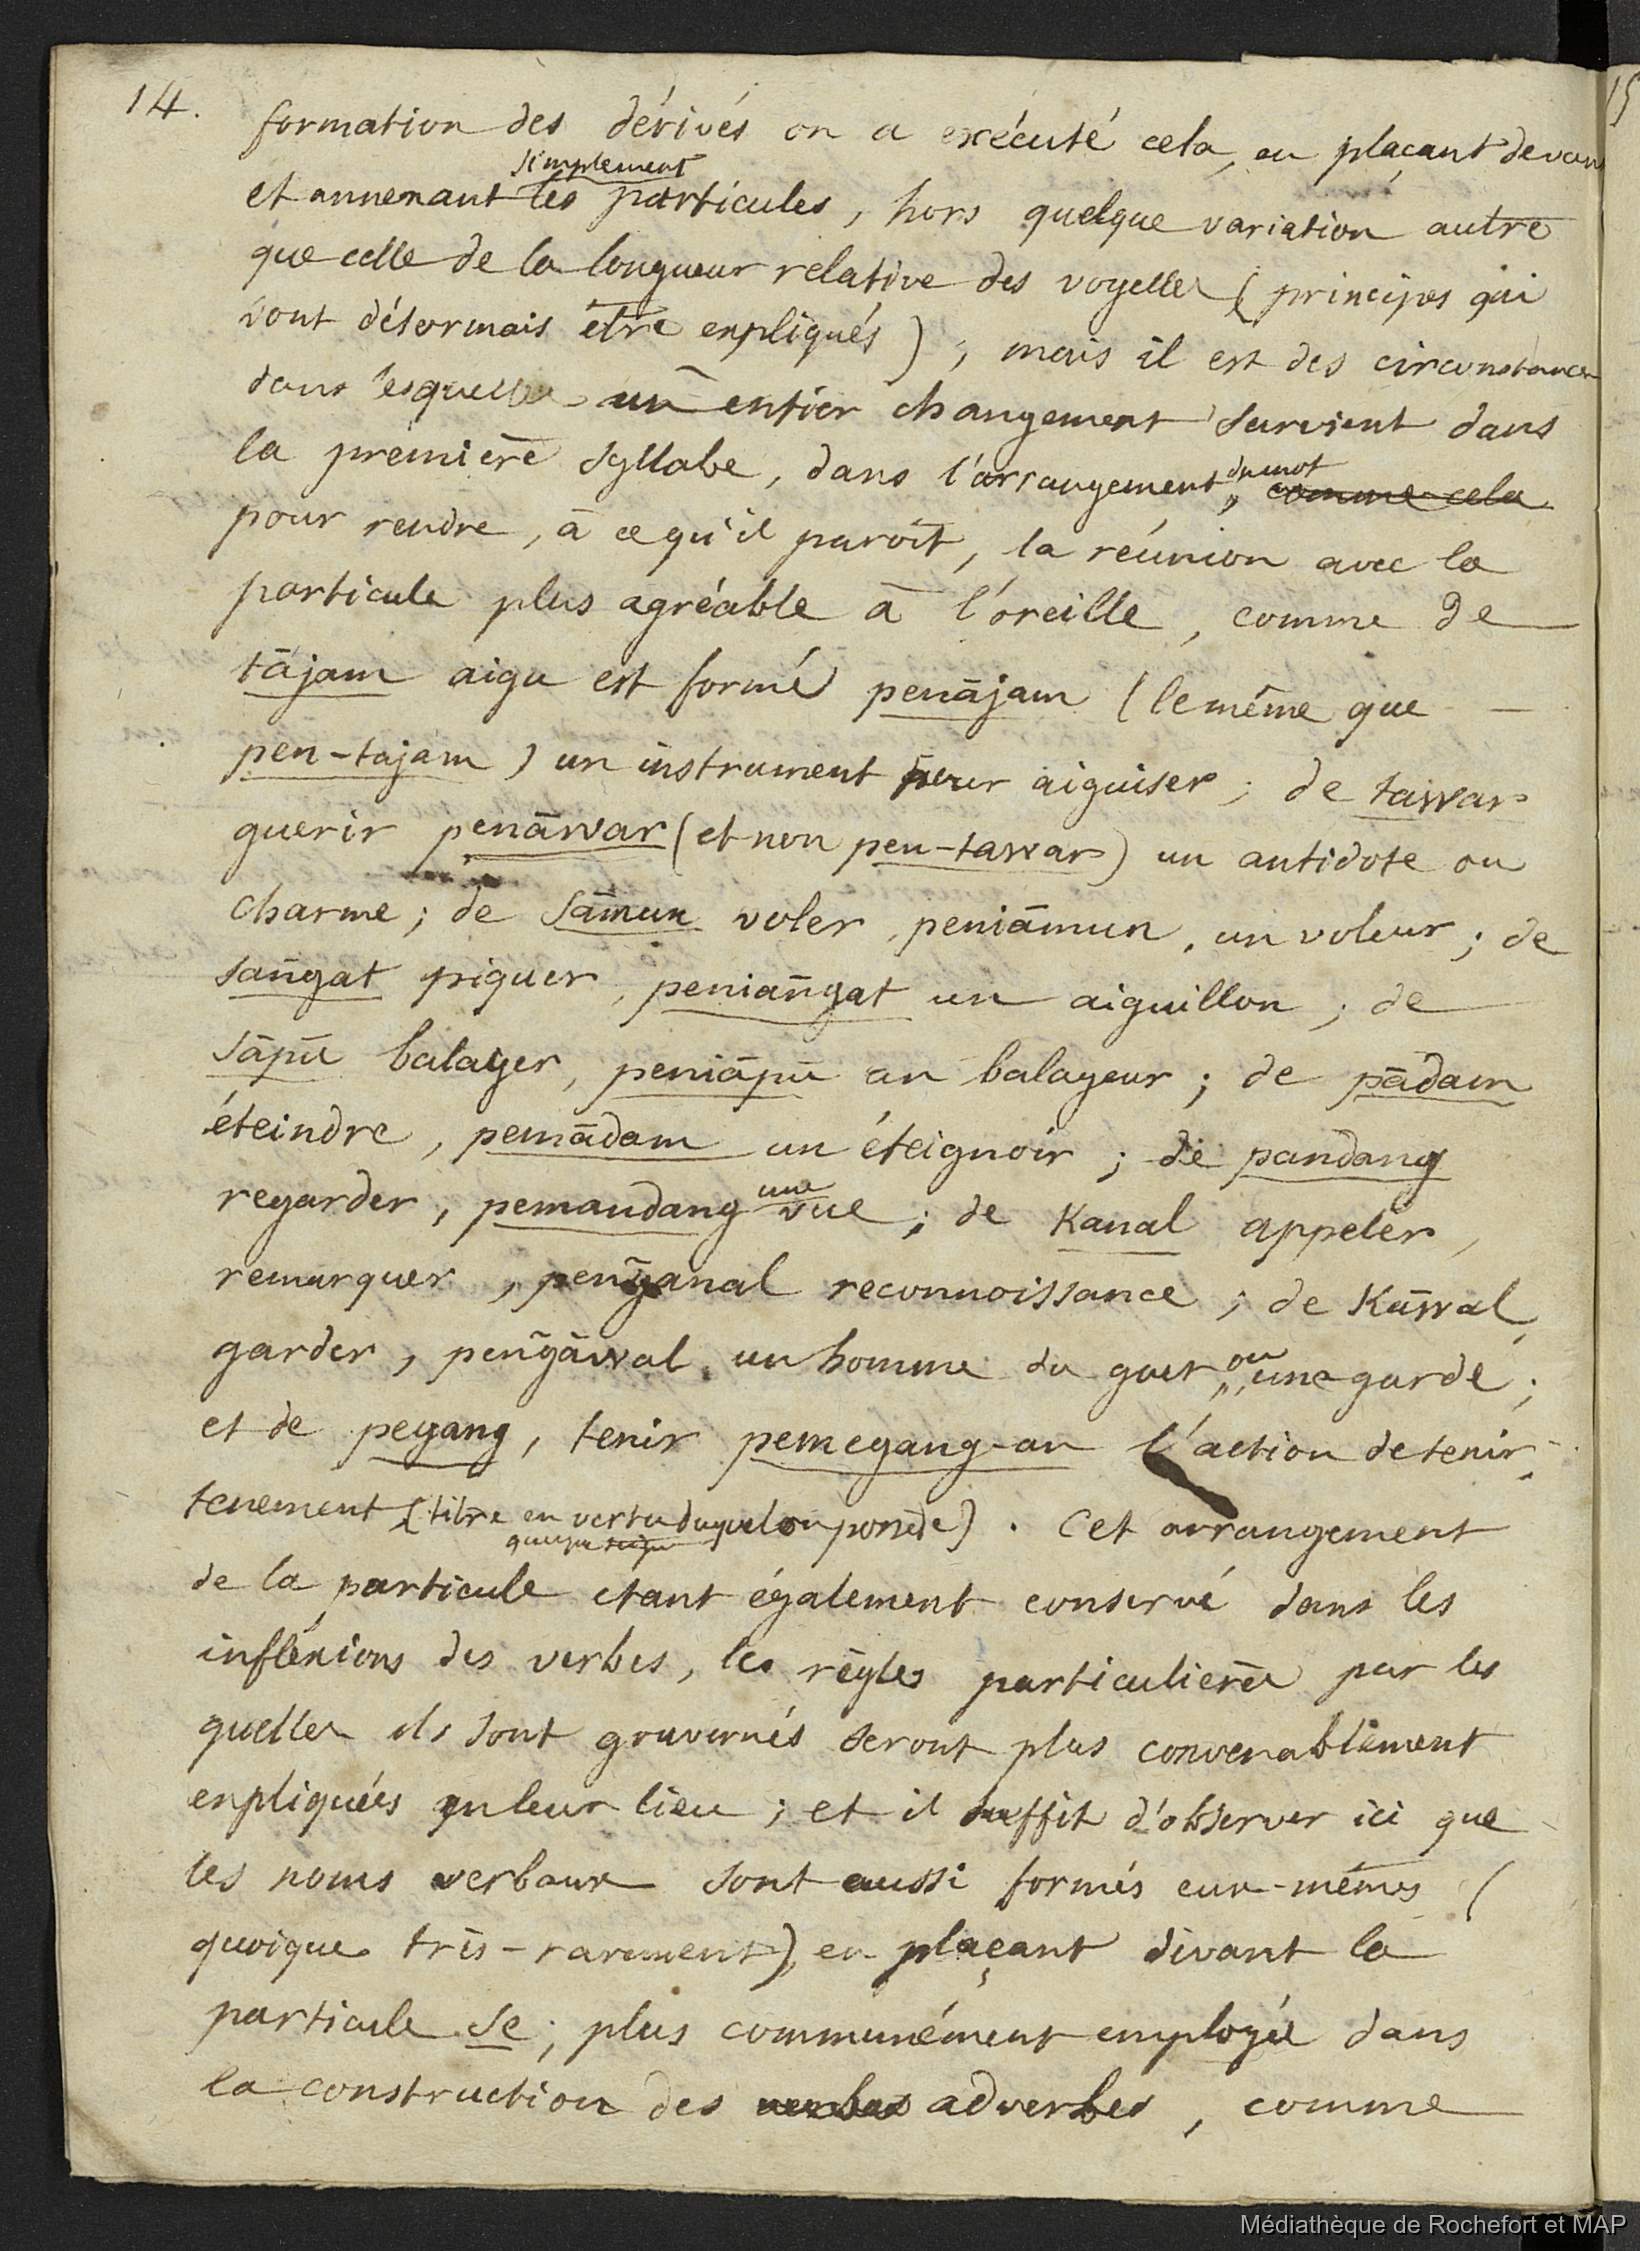 14.
formation des dérivés on a exécuté cela, en plaçant devan
simplement
et annexant les particules, hors quelque variation autre
que celle de la longueur relative des voyelles (principes qui
vont désormais être expliqués); mais il est des circonstances
dans lesquelles un entier changement survient dans
la première syllabe, dans l'arrangement du mot comme cela
pour rendre, à ce qu'il paroît, la réunion avec la
particule plus agréable à l'oreille, comme de
tājam aigu est formé penājam (le même que
pen-tajam) un instrument pour aiguiser; de tawar
guerir penāwar (et non pen-tawar) un antidote ou
charme; de sāmun voler, peniāmun, un voleur; de
sañgat piquer, peniañgat un aiguillon; de
sāpū balayer, peniāpū un balayeur; de pādam
éteindre, pemādam un éteignoir; de pandang
regarder, pemandang une vue; de Kanal appeler,
remarquer, peñganal reconnoissance; de Kāwal
garder, peñgāwal un homme du guet ou une garde;
et de pegang, tenir pemegang-an l'action de tenir
tenement (titre en vertu duquel on possède). Cet arrangement
de la particule étant également conservé dans les
infléxions des verbes, les règles particulières par les
quelles ils sont gouvernés seront plus convenablement
expliquées en leur lieu; et il suffit d'observer ici que
les noms verbaux sont aussi formés eux-mêmes (
quoique très-rarement), en plaçant divant la
particule se; plus communément employée dans
la construction des verbes adverbes, comme
15
Médiathèque de Rochefort et MAP